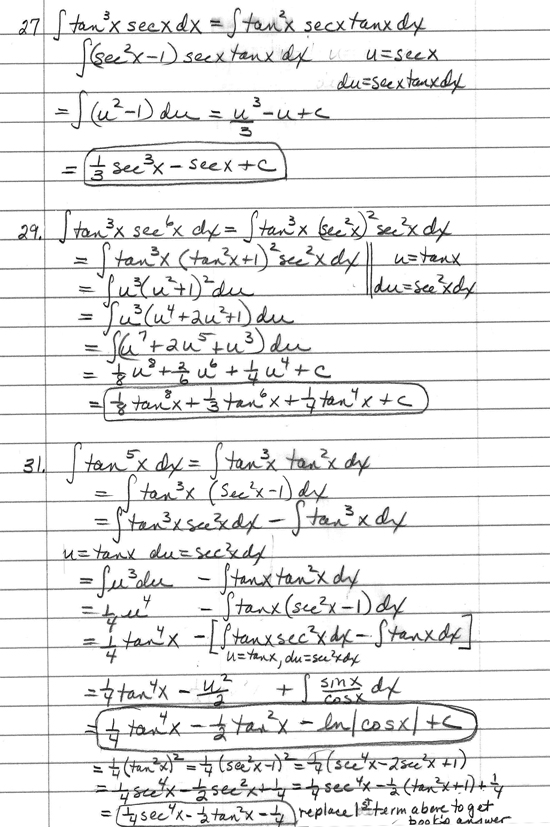 27 ∫tan³x secx dx = ∫tan²x secx tanx dx
∫(sec²x-1) secx tanx dx u=secx
du=secxtanxdx
= ∫(u²-1) du = u³/3 - u+c
= 1/3 sec³x - secx + c
29. ∫tan³x sec⁶x dx = ∫tan³x (sec²x)² sec²x dx
= ∫tan³x (tan²x+1)² sec²x dx || u=tanx
= ∫u³(u²+1)² du || du=sec²xdx
= ∫u³(u⁴+2u²+1) du
= ∫(u⁷+2u⁵+u³) du
= 1/8 u⁸ + 2/6 u⁶ + 1/4 u⁴ + c
= 1/8 tan⁸x + 1/3 tan⁶x + 1/4 tan⁴x + c
31. ∫tan⁵x dx = ∫tan³x tan²x dx
= ∫tan³x (sec²x-1) dx
= ∫tan³x sec²x dx - ∫tan³x dx
u=tanx du=sec²xdx
= ∫u³du - ∫tanx tan²x dx
= 1/4 u⁴ - ∫tanx (sec²x-1) dx
= 1/4 tan⁴x - [∫tanx sec²x dx - ∫tanx dx]
u=tanx, du=sec²xdx
= 1/4 tan⁴x - u²/2 + ∫ sinx/cosx dx
= 1/4 tan⁴x - 1/2 tan²x - ln|cosx| + c
= 1/4 (tan²x)² = 1/4 (sec²x-1)² = 1/4 (sec⁴x-2sec²x+1)
= 1/4 sec⁴x - 1/2 sec²x + 1/4 = 1/4 sec⁴x - 1/2 (tan²x+1) + 1/4
= 1/4 sec⁴x - 1/2 tan²x - 1/4 replace 1st term above to get
book's answer